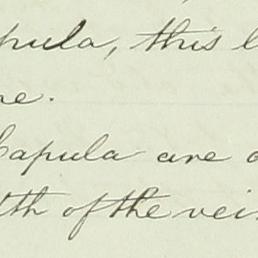 pula, this l
ne.
Capula are a
lth of the vei